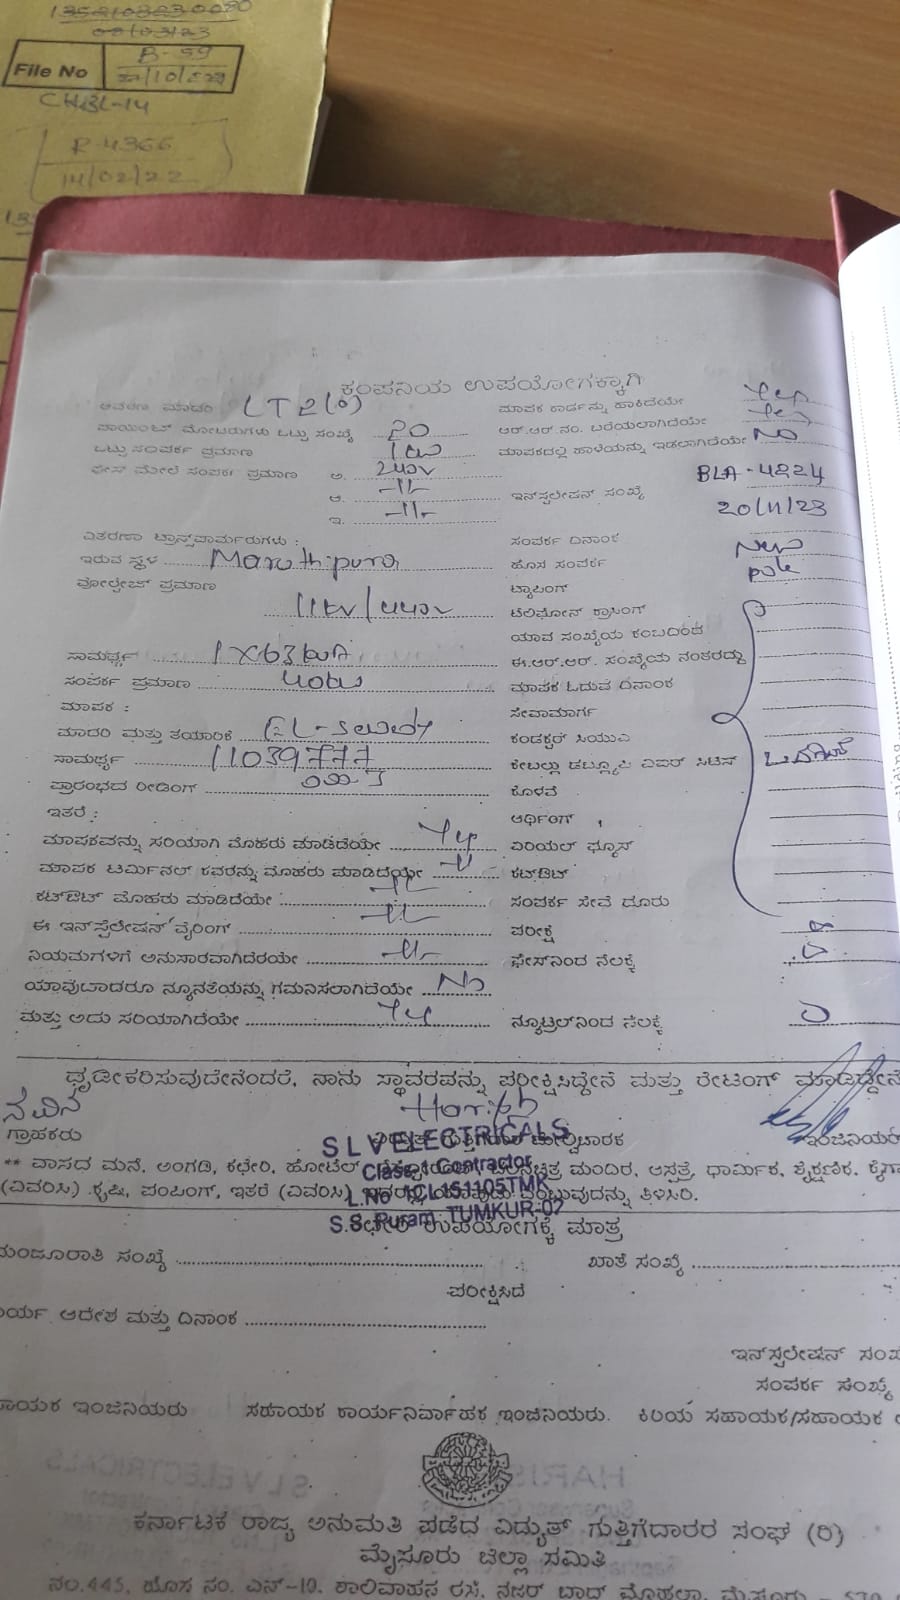 File No
B-59
CHBL-14
R-4366
14/02/22
ಕಂಪನಿಯ ಉಪಯೋಗಕ್ಕಾಗಿ
LT 2(a) ಮಾಪಕ ಕಾರ್ಡನ್ನು ಹಾಕಿದೆಯೇ Yes
ಒಟ್ಟು ಸಂಖ್ಯೆ 20 ಆರ್.ಆರ್.ನಂ. ಬರೆಯಲಾಗಿದೆಯೇ Yes
ಒಟ್ಟು ಸಂಪರ್ಕ ಪ್ರಮಾಣ 1kw ಮಾಪಕದಲ್ಲಿ ಹಾಳೆಯನ್ನು ಇಡಲಾಗಿದೆಯೇ No
ಫೇಸ್ ಮೇಲೆ ಸಂಪರ್ಕ ಪ್ರಮಾಣ ಅ. 240v
ಆ. -11- ಇನ್‌ಸ್ಟಲೇಷನ್ ಸಂಖ್ಯೆ BLA-4224
ಇ. -11- 20/11/23
ವಿತರಣಾ ಟ್ರಾನ್ಸ್‌ಫಾರ್ಮರುಗಳು : ಸಂಪರ್ಕ ದಿನಾಂಕ
ಇರುವ ಸ್ಥಳ Maruthipura ಹೊಸ ಸಂಪರ್ಕ New
ವೋಲ್ಟೇಜ್ ಪ್ರಮಾಣ ಟ್ಯಾಪಿಂಗ್ pole
11kv/440v ಟೆಲಿಫೋನ್ ಕ್ರಾಸಿಂಗ್
ಯಾವ ಸಂಖ್ಯೆಯ ಕಂಬದಿಂದ
ಸಾಮರ್ಥ್ಯ 1X63kvA ಈ.ಆರ್.ಆರ್. ಸಂಖ್ಯೆಯ ನಂತರದ್ದು
ಸಂಪರ್ಕ ಪ್ರಮಾಣ 40kw ಮಾಪಕ ಓದುವ ದಿನಾಂಕ
ಮಾಪಕ : ಸೇವಾಮಾರ್ಗ
ಮಾದರಿ ಮತ್ತು ತಯಾರಿಕೆ EL-Sewedy ಕಂಡಕ್ಟರ್
ಸಾಮರ್ಥ್ಯ 11039777 ಕೇಬಲ್ಲು
ಪ್ರಾರಂಭದ ರೀಡಿಂಗ್ ಕೊಳವೆ
ಇತರೆ : ಆರ್ಥಿಂಗ್
ಮಾಪಕವನ್ನು ಸರಿಯಾಗಿ ಮೊಹರು ಮಾಡಿದೆಯೇ Yes ಏರಿಯಲ್ ಫ್ಯೂಸ್
ಮಾಪಕ ಟರ್ಮಿನಲ್ ಕವರನ್ನು ಮೊಹರು ಮಾಡಿದೆಯೇ -11- ಕಟ್‌ಔಟ್
ಕಟ್‌ಔಟ್ ಮೊಹರು ಮಾಡಿದೆಯೇ -11- ಸಂಪರ್ಕ ಸೇವೆ ದೂರು
ಈ ಇನ್‌ಸ್ಟೆಲೇಷನ್ ವೈರಿಂಗ್ -11- ಪರೀಕ್ಷೆ
ನಿಯಮಗಳಿಗೆ ಅನುಸಾರವಾಗಿದೆಯೇ -11- ಫೇಸ್‌ನಿಂದ ನೆಲಕ್ಕೆ
ಯಾವುದಾದರೂ ನ್ಯೂನತೆಯನ್ನು ಗಮನಿಸಲಾಗಿದೆಯೇ No
ಮತ್ತು ಅದು ಸರಿಯಾಗಿದೆಯೇ Yes ನ್ಯೂಟ್ರಲ್‌ನಿಂದ ನೆಲಕ್ಕೆ
ಧೃಡೀಕರಿಸುವುದೇನೆಂದರೆ, ನಾನು ಸ್ಥಾವರವನ್ನು ಪರೀಕ್ಷಿಸಿದ್ದೇನೆ ಮತ್ತು ರೇಟಿಂಗ್ ಮಾಡಿದ್ದೇನೆ
ನವೀನ Harish
ಗ್ರಾಹಕರು ಇಂಜಿನಿಯರ್
S L V ELECTRICALS
Class-1 Contractor
L.No 1CL151105TMK
S.S. Puram, TUMKUR-02
** ವಾಸದ ಮನೆ, ಅಂಗಡಿ, ಕಛೇರಿ, ಹೋಟೆಲ್ ಚಲನಚಿತ್ರ ಮಂದಿರ, ಆಸ್ಪತ್ರೆ, ಧಾರ್ಮಿಕ, ಶೈಕ್ಷಣಿಕ,
(ವಿವರಿಸಿ) ಕೃಷಿ, ಪಂಪಿಂಗ್, ಇತರೆ (ವಿವರಿಸಿ) ಎಂಬುವುದನ್ನು ತಿಳಿಸಿರಿ.
ಕಛೇರಿ ಉಪಯೋಗಕ್ಕೆ ಮಾತ್ರ
ಮಂಜೂರಾತಿ ಸಂಖ್ಯೆ ಖಾತೆ ಸಂಖ್ಯೆ
ಪರೀಕ್ಷಿಸಿದೆ
ಕಾರ್ಯ ಆದೇಶ ಮತ್ತು ದಿನಾಂಕ
ಇನ್‌ಸ್ಟಲೇಷನ್
ಸಂಪರ್ಕ ಸಂಖ್ಯೆ
ಸಹಾಯಕ ಇಂಜಿನಿಯರು ಸಹಾಯಕ ಕಾರ್ಯನಿರ್ವಾಹಕ ಇಂಜಿನಿಯರು. ಕಿರಿಯ ಸಹಾಯಕ/ಸಹಾಯಕ
ಕರ್ನಾಟಕ ರಾಜ್ಯ ಅನುಮತಿ ಪಡೆದ ವಿದ್ಯುತ್ ಗುತ್ತಿಗೆದಾರರ ಸಂಘ (ರಿ)
ಮೈಸೂರು ಜಿಲ್ಲಾ ಸಮಿತಿ
ನಂ.445, ಹೊಸ ನಂ. ಎನ್-10, ಶಾಲಿವಾಹನ ರಸ್ತೆ, ನಜರ್ ಬಾದ್ ಮೊಹಲ್ಲಾ, ಮೈಸೂರು